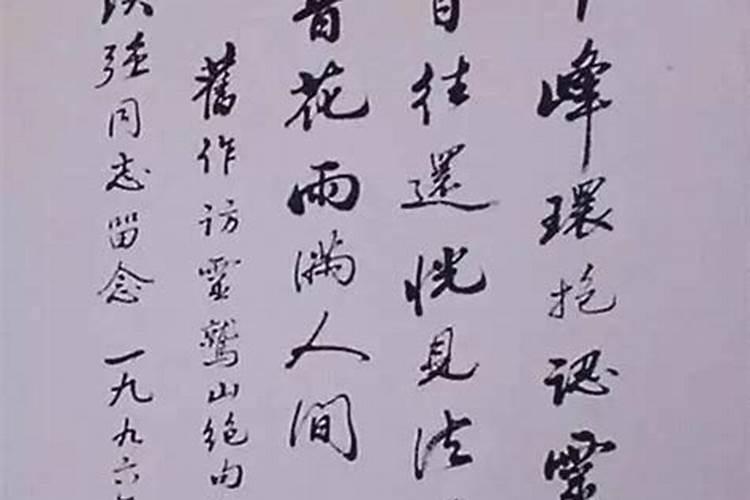 峰環抱認靈
往還恍見法
花雨满人间
舊作访靈鷲山绝句
强同志留念 一九九六年